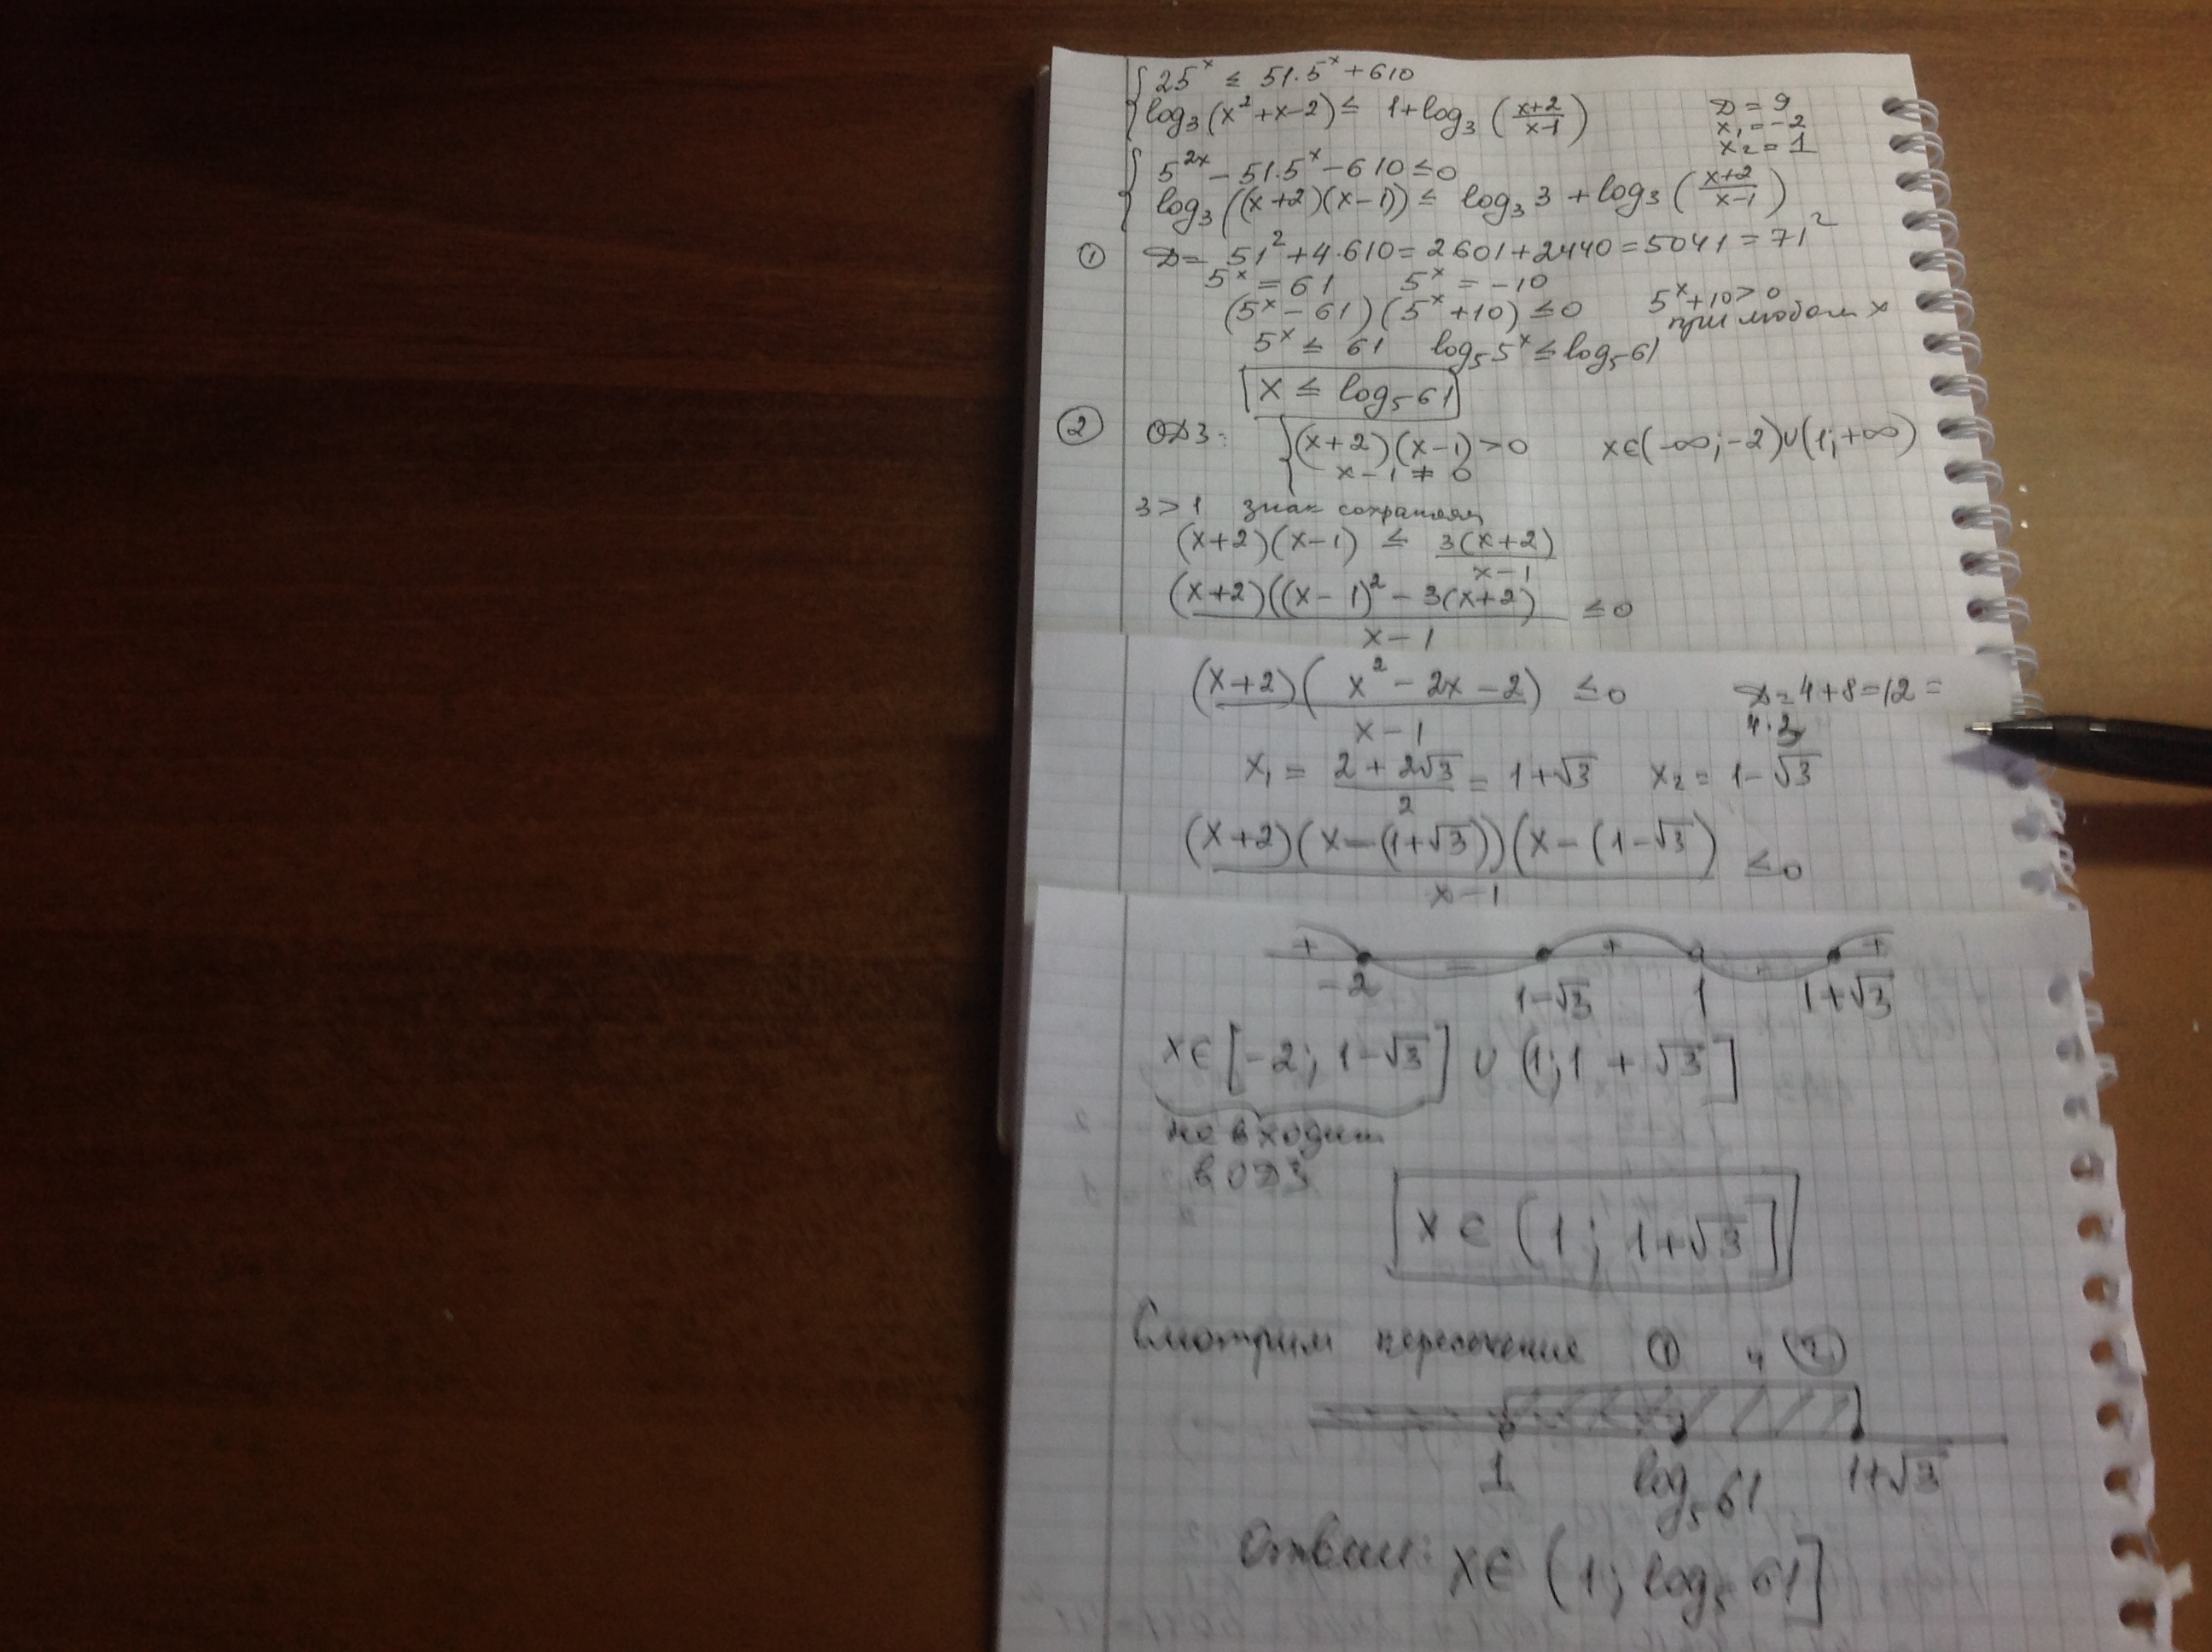 { 25^x ≤ 51·5^x + 610
{ log₃(x²+x-2) ≤ 1+log₃(x+2/x-1)
D = 9
x₁ = -2
x₂ = 1
{ 5^2x - 51·5^x - 610 ≤ 0
{ log₃((x+2)(x-1)) ≤ log₃3 + log₃(x+2/x-1)
① D = 51² + 4·610 = 2601 + 2440 = 5041 = 71²
5^x = 61 5^x = -10
(5^x - 61)(5^x + 10) ≤ 0 5^x + 10 > 0
при любом x
5^x ≤ 61 log₅5^x ≤ log₅61
x ≤ log₅61
② ОДЗ: { (x+2)(x-1) > 0 x∈(-∞;-2)∪(1;+∞)
x-1 ≠ 0
3 > 1 знак сохраняем
(x+2)(x-1) ≤ 3(x+2)/x-1
(x+2)((x-1)² - 3(x+2)/x-1 ≤ 0
(x+2)(x² - 2x - 2)/x-1 ≤ 0
D = 4+8 = 12 =
4·3
x₁ = 2+2√3/2 = 1+√3 x₂ = 1-√3
(x+2)(x-(1+√3))(x-(1-√3)/x-1 ≤ 0
+ - + - +
-2 1-√3 1 1+√3
x∈[-2; 1-√3] ∪ (1; 1+√3]
не входит
в ОДЗ
x ∈ (1; 1+√3]
Смотрим пересечение ① и ②
1 log₅61 1+√3
Ответ: x∈(1; log₅61]